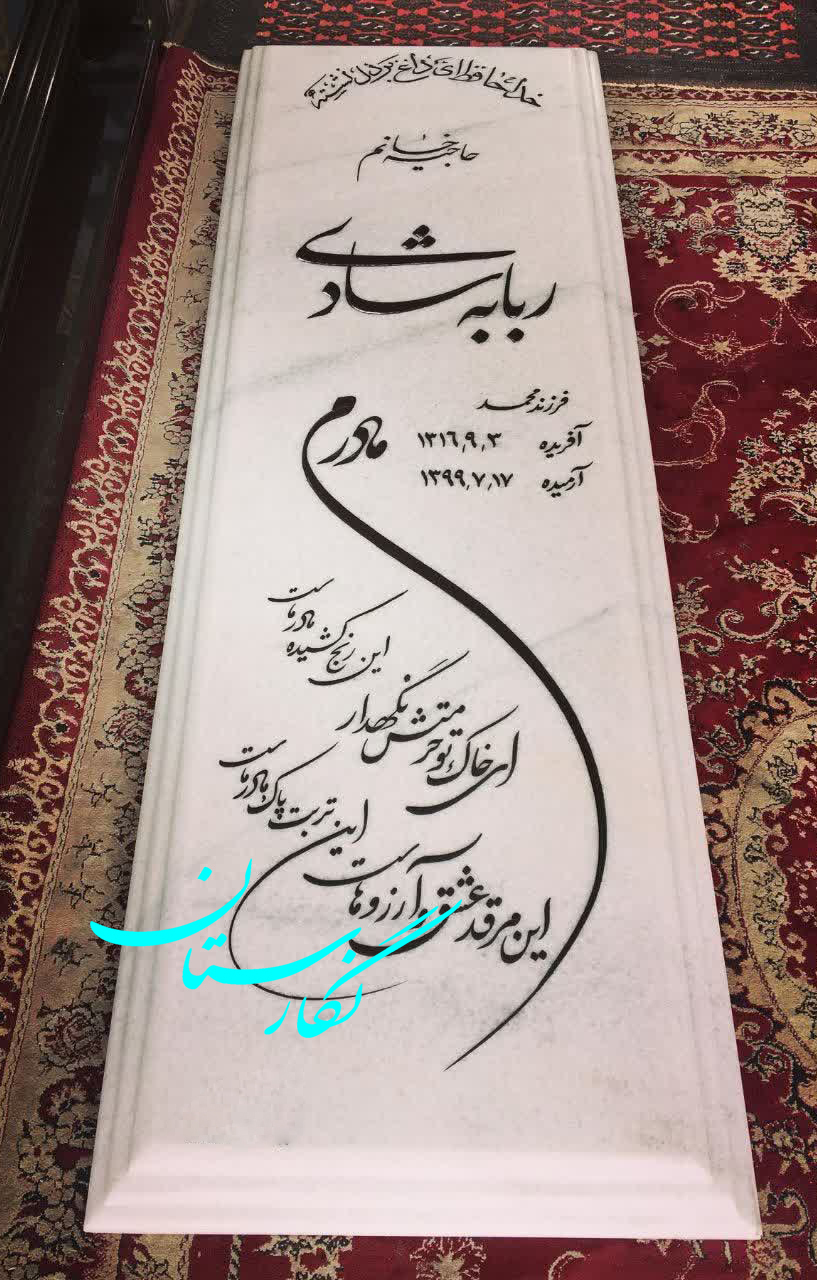 خداحافظ ای داغ بر دل نشسته
حاجیه خانم
ربابه شادی
فرزند محمد
آفریده ۱۳۱۶٫۹٫۳
آرمیده ۱۳۹۹٫۷٫۱۷
مادرم
ای خاک تو حرمتش نگهدار
این رنج کشیده مادر ماست
این مرقد عشق و آرزوهاست
این تربت پاک مادر ماست
نگارستان